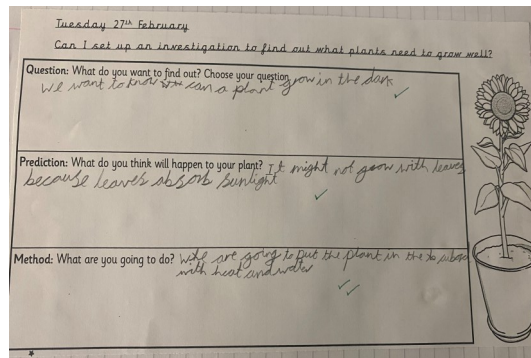 Tuesday 27th February
Can I set up an investigation to find out what plants need to grow well?
Question: What do you want to find out? Choose your question
we want to know can a plant grow in the dark
Prediction: What do you think will happen to your plant? It might not grow with leaves
because leaves absorb sunlight
Method: What are you going to do? We are going to put the plant in the
with heat and water